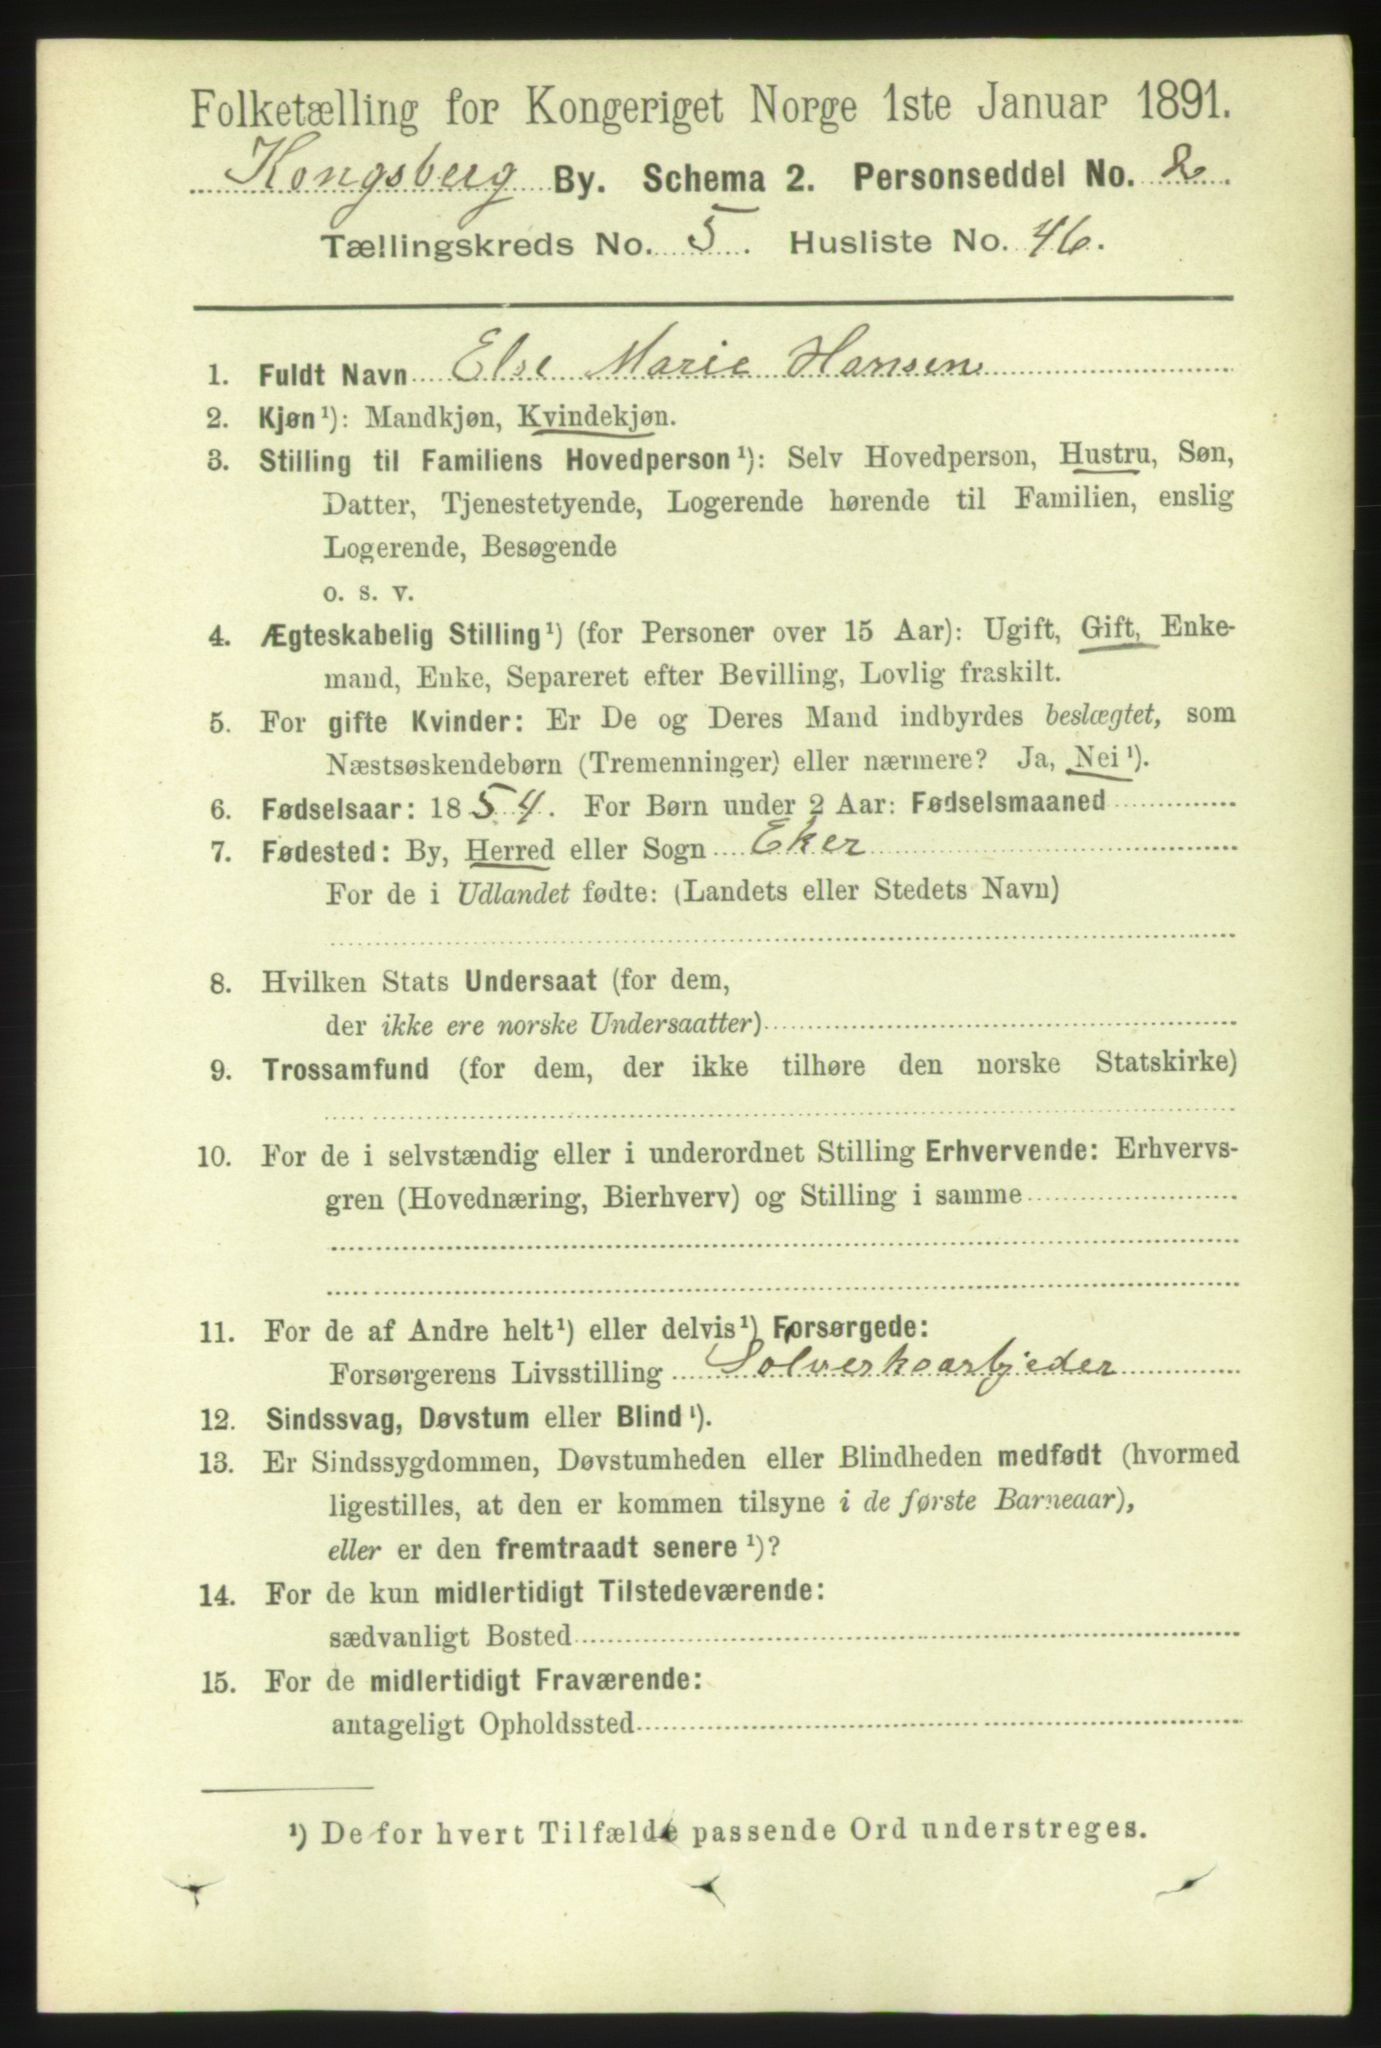 Folketælling for Kongeriget Norge 1ste Januar 1891.
Kongsberg By. Schema 2. Personseddel No. 2.
Tællingskreds No. 5. Husliste No. 46.
1. Fuldt Navn Else Marie Hansen
2. Kjøn¹): Mandkjøn, Kvindekjøn.
3. Stilling til Familiens Hovedperson¹): Selv Hovedperson, Hustru, Søn,
Datter, Tjenestetyende, Logerende hørende til Familien, enslig
Logerende, Besøgende
o. s. v.
4. Ægteskabelig Stilling¹) (for Personer over 15 Aar): Ugift, Gift, Enke-
mand, Enke, Separeret efter Bevilling, Lovlig fraskilt.
5. For gifte Kvinder: Er De og Deres Mand indbyrdes beslægtet, som
Næstsøskendebørn (Tremenninger) eller nærmere? Ja, Nei¹).
6. Fødselsaar: 1854. For Børn under 2 Aar: Fødselsmaaned
7. Fødested: By, Herred eller Sogn Eker
For de i Udlandet fødte: (Landets eller Stedets Navn)
8. Hvilken Stats Undersaat (for dem,
der ikke ere norske Undersaatter)
9. Trossamfund (for dem, der ikke tilhøre den norske Statskirke)
10. For de i selvstændig eller i underordnet Stilling Erhvervende: Erhvervs-
gren (Hovednæring, Bierhverv) og Stilling i samme
11. For de af Andre helt¹) eller delvis¹) Forsørgede:
Forsørgerens Livsstilling Solverksarbjeder
12. Sindssvag, Døvstum eller Blind¹).
13. Er Sindssygdommen, Døvstumheden eller Blindheden medfødt (hvormed
ligestilles, at den er kommen tilsyne i de første Barneaar),
eller er den fremtraadt senere¹)?
14. For de kun midlertidigt Tilstedeværende:
sædvanligt Bosted
15. For de midlertidigt Fraværende:
antageligt Opholdssted
¹) De for hvert Tilfælde passende Ord understreges.